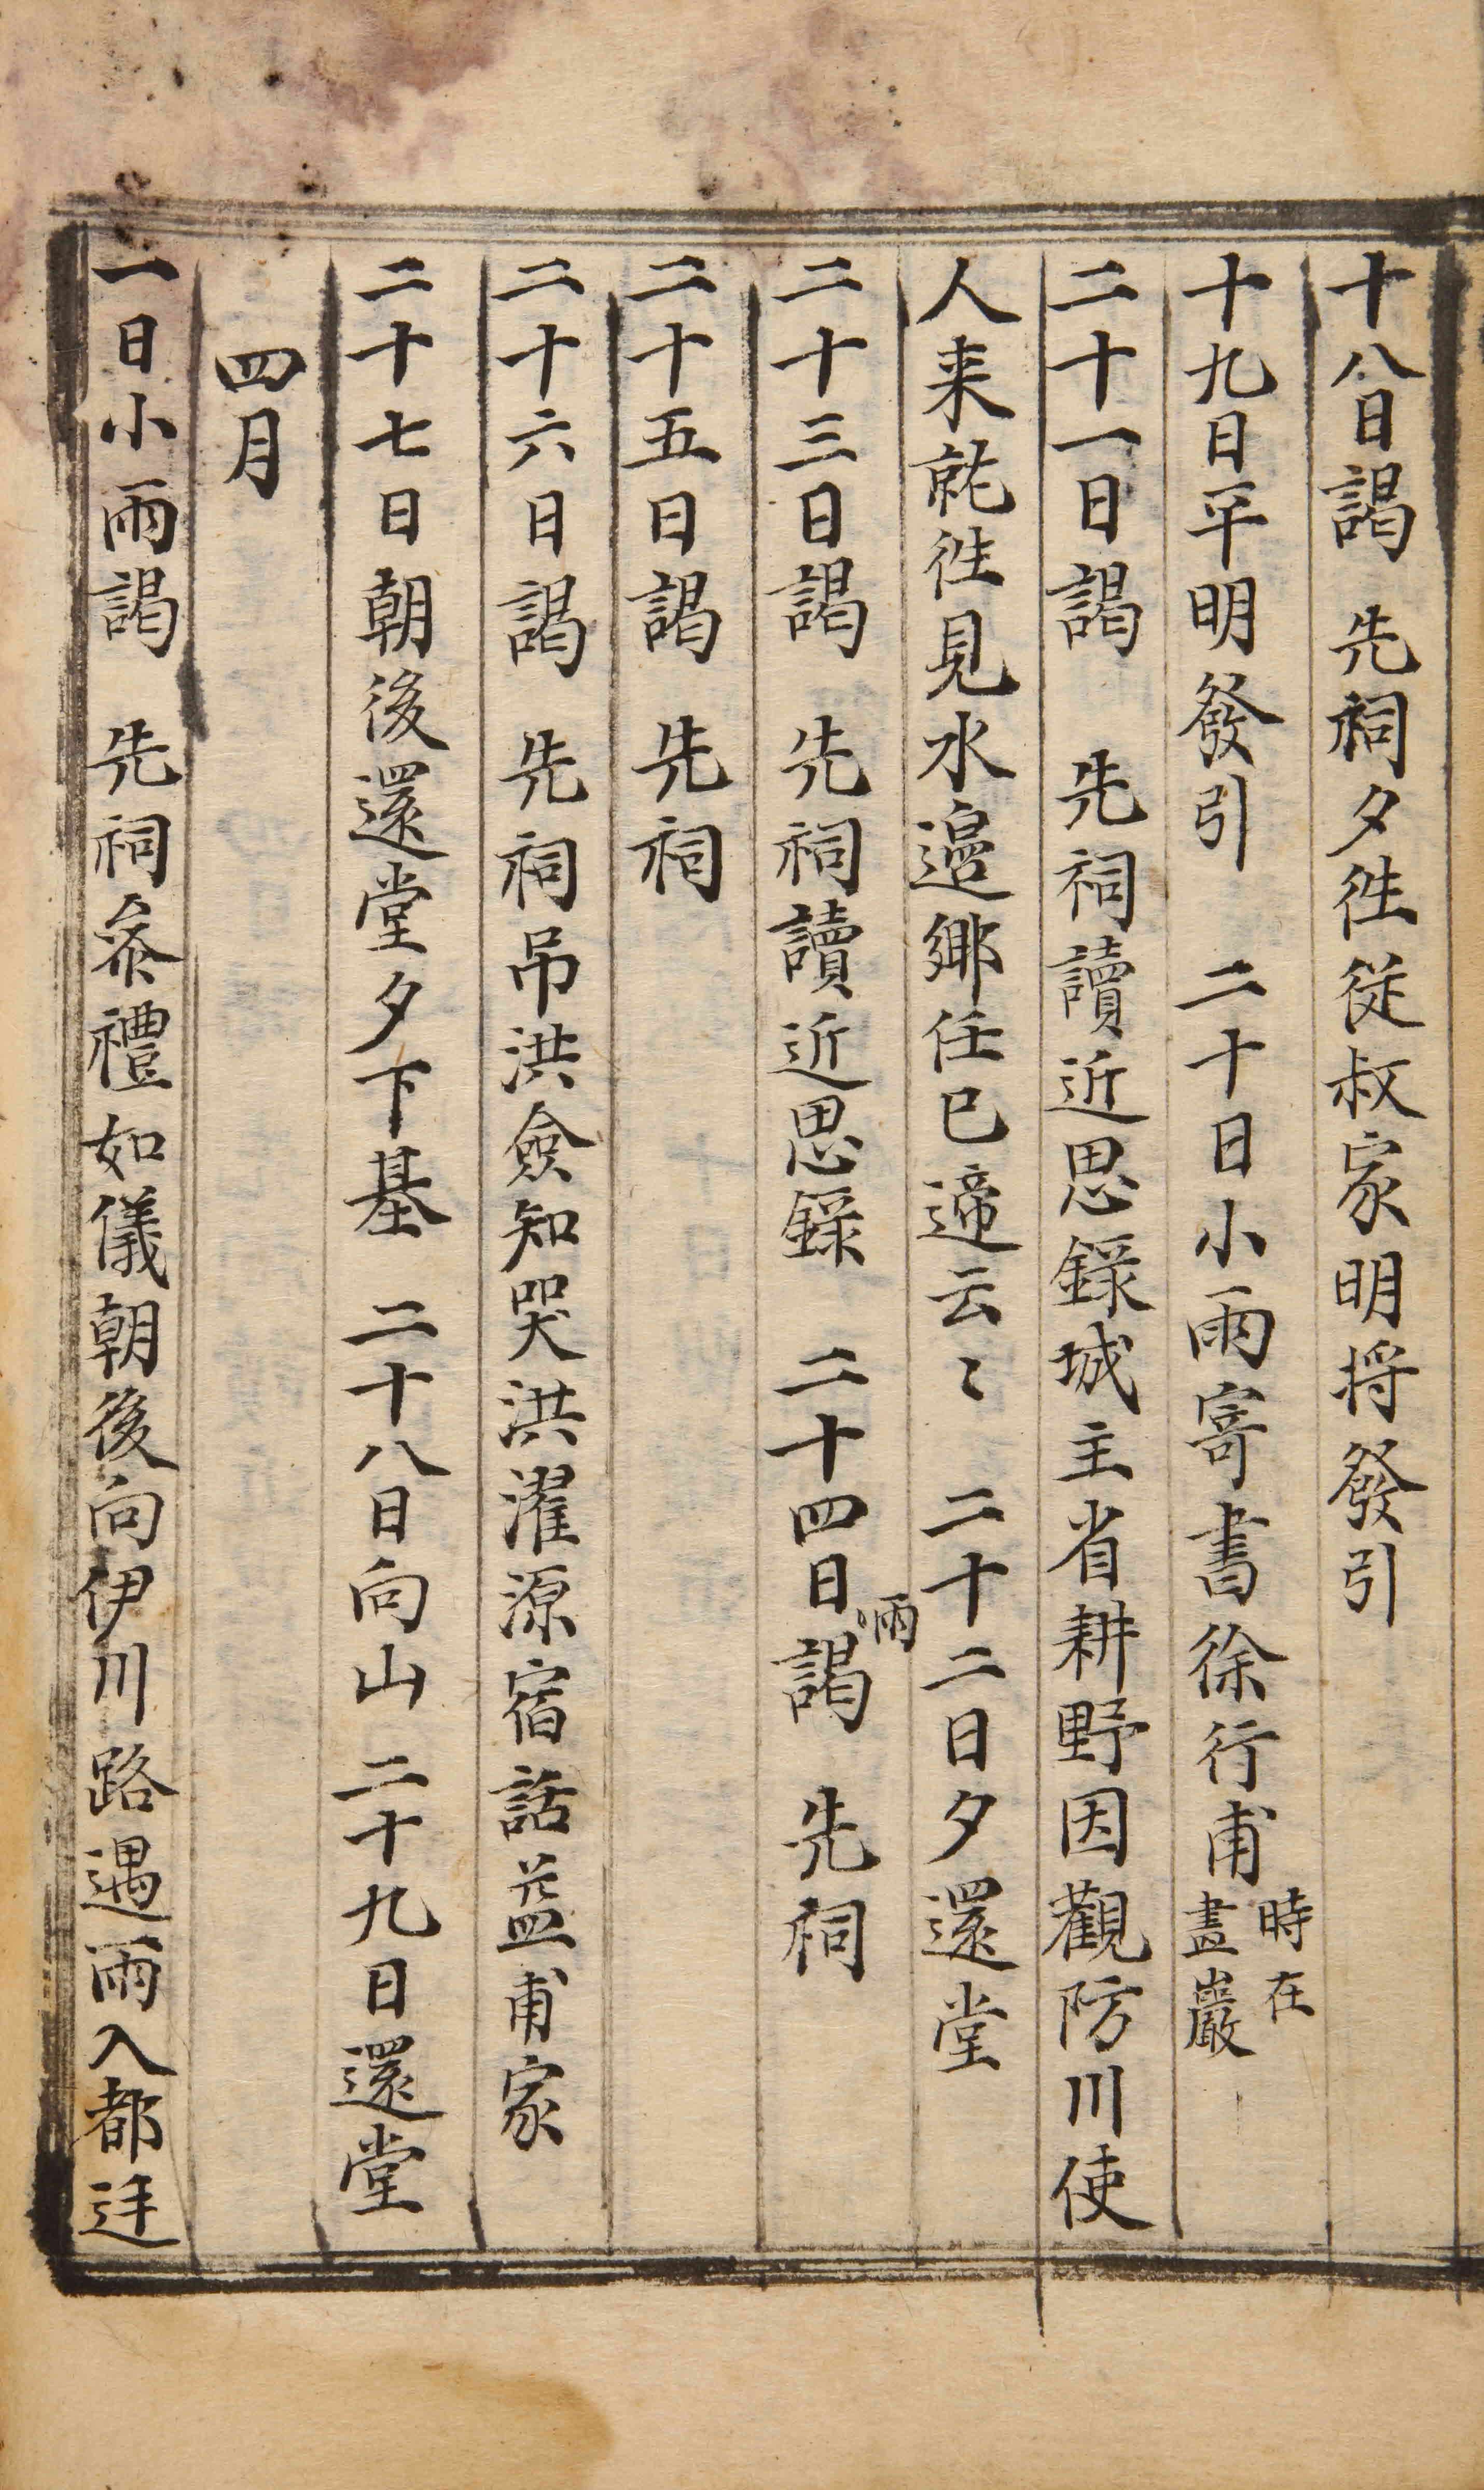 十八日謁　先祠夕徃從叔家明将發引
十九日平明發引　二十日小雨寄書徐行甫時在畫巖
二十一日謁　先祠讀近思録城主省耕野因觀防川使
人来就徃見水邉鄉任已遞云〻　二十二日夕還堂
二十三日謁　先祠讀近思錄　二十四日雨謁　先祠
二十五日謁　先祠
二十六日謁　先祠吊洪僉知哭洪濯源宿話益甫家
二十七日朝後還堂夕下基　二十八日向山　二十九日還堂
四月
一日小雨謁　先祠叅禮如儀朝後向伊川路遇雨入都迋